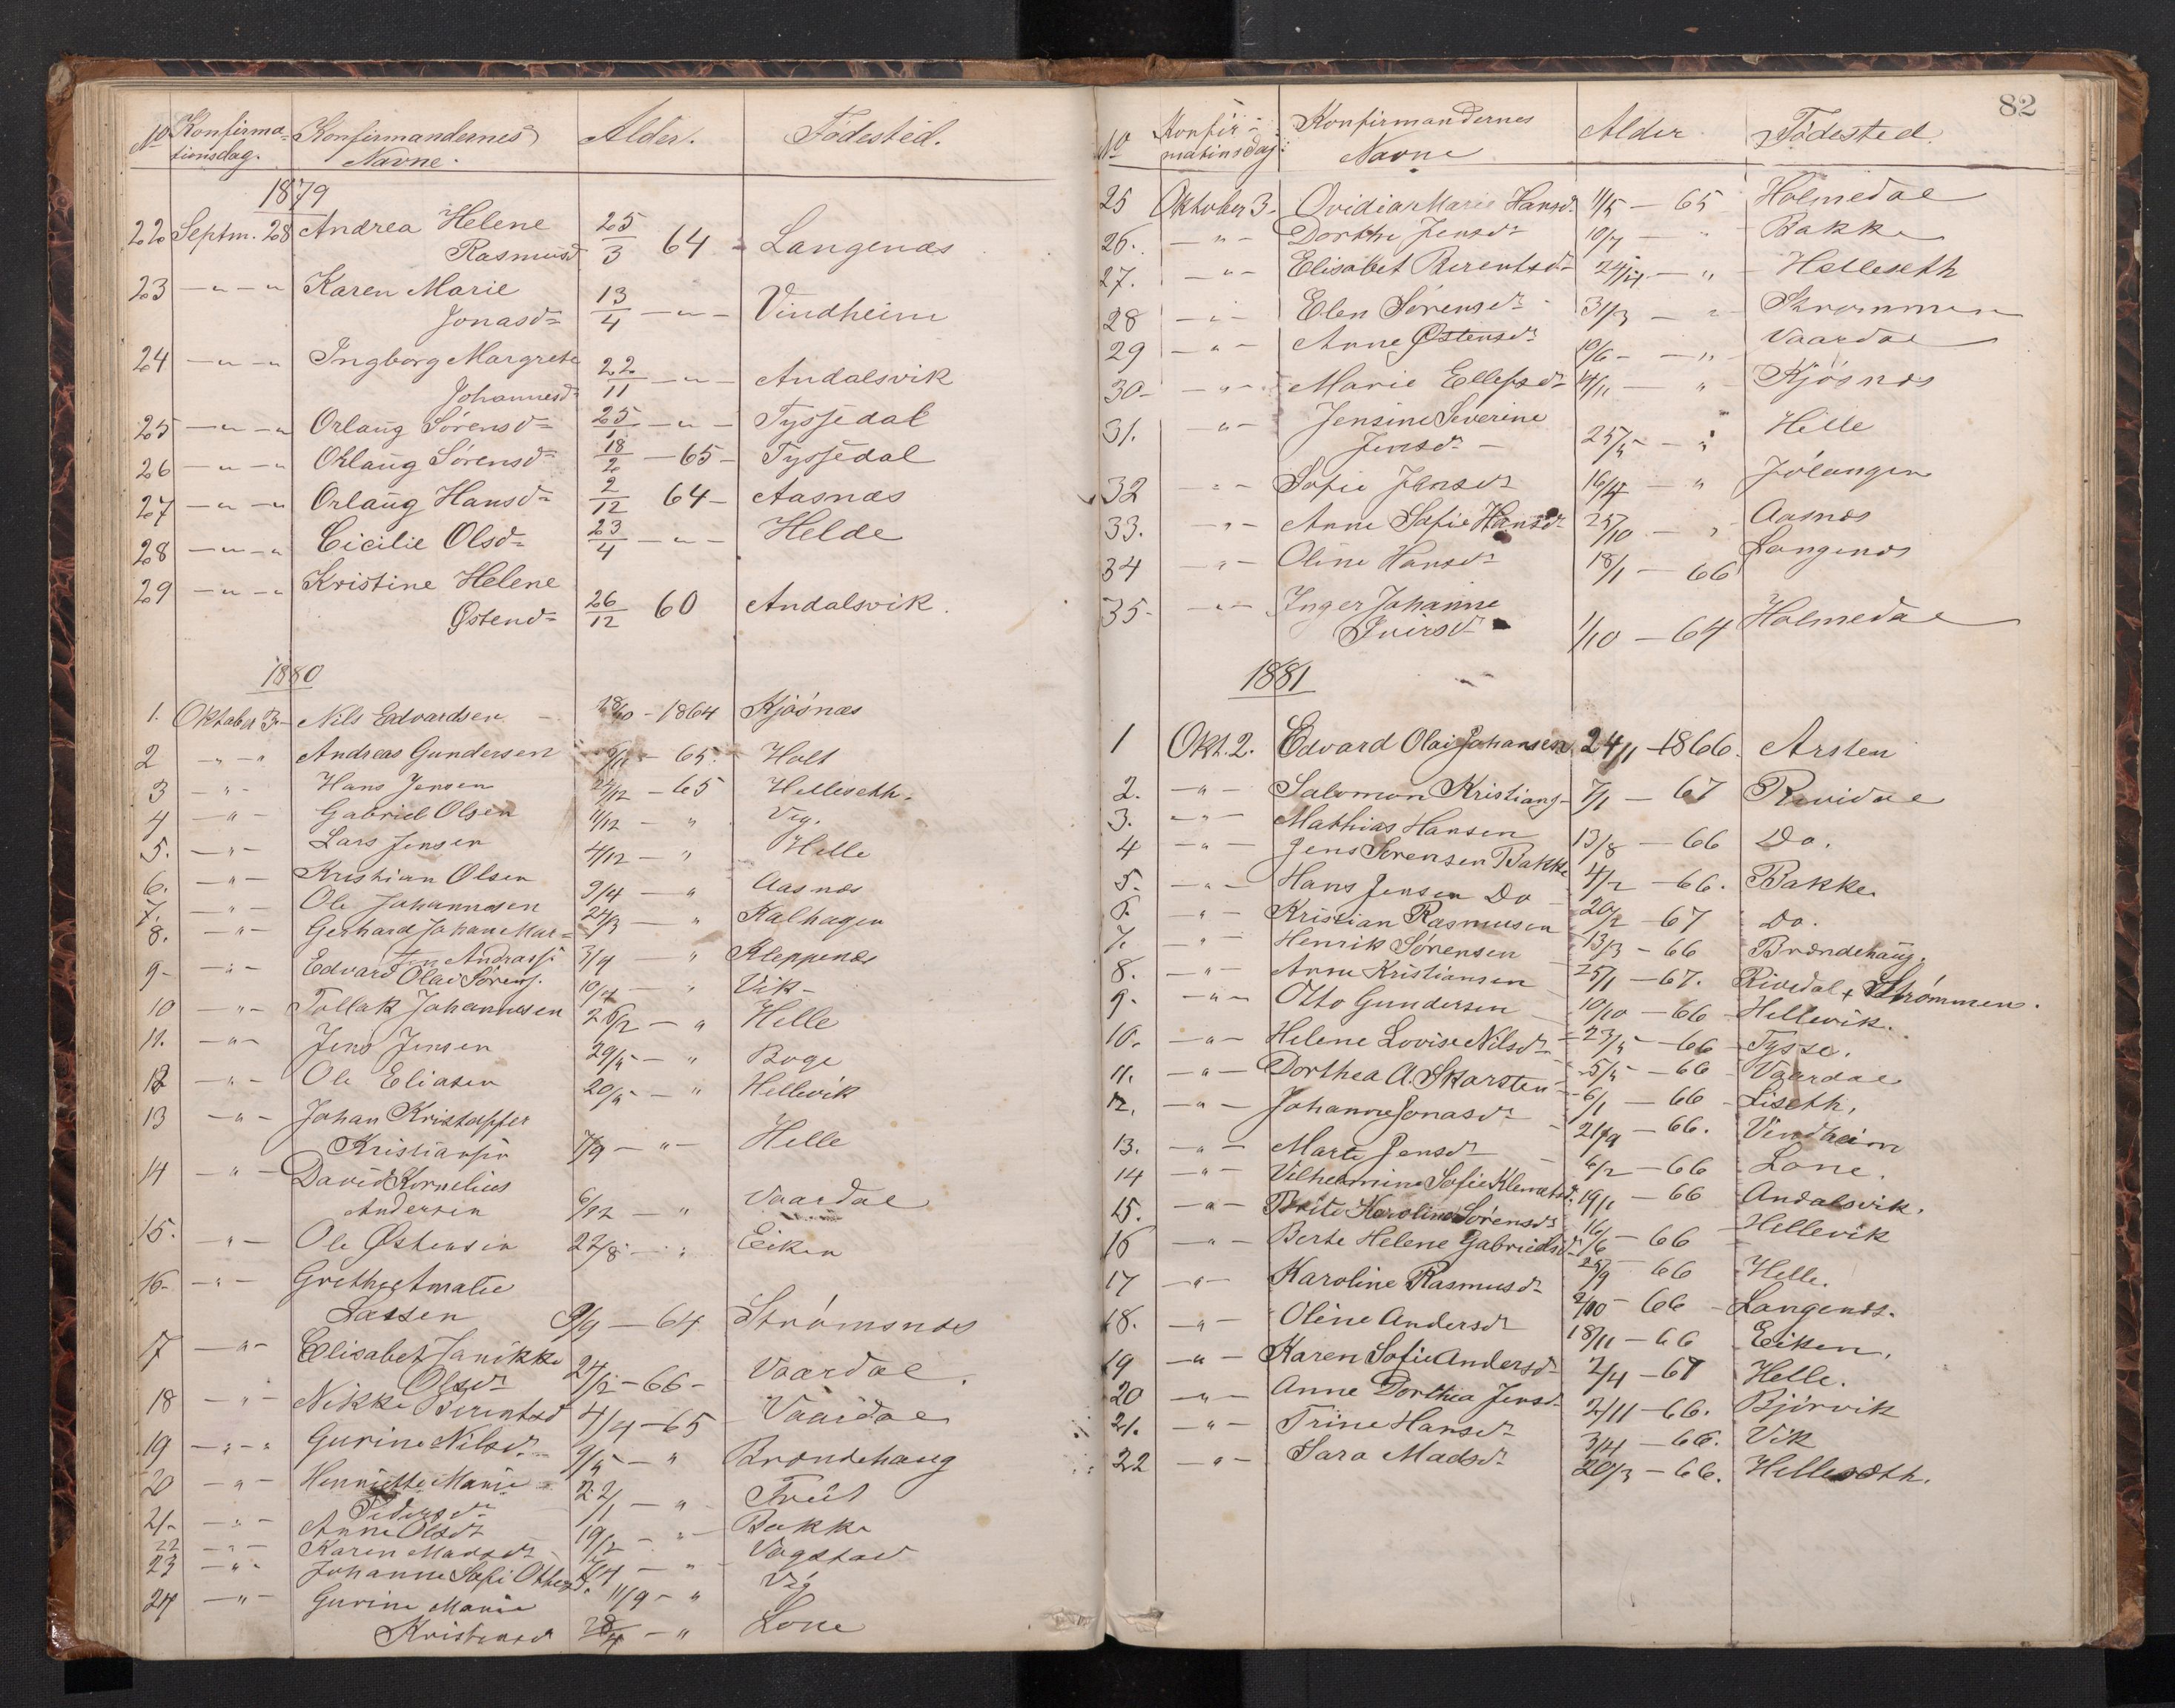 No Konfirma= Konfirmandernes Alder. Fødested.
tionsdag. Navne.
1879
22 Septm. 28 Andrea Helene
Rasmusd 25/3 64 - Langenæs
23 -"-" Karen Marie
Jonasd= 13/4 -"- Vindheim
24 -"-" Ingborg Margrete
Johannesd= 22/11 -"- Andalsvik
25 -"-" Orlaug Sørensd= 25/1 -"- Tyssedal
26 -"-" Orlaug Sørensd= 18/2 - 65 - Tyssedal
27 -"-" Orlaug Hansd= 2/12 64 - Aasnæs
28 -"-" Cicilie Olsd= 23/4 -"- Helde
29 -"-" Kristine Helene
Østend= 26/12 60 Andalsvik.
1880
1. Oktober 3 - Nils Edvardsen - 18/10 - 1864 Kjøsnæs
2 -"-" Andreas Gundersen 65. Holt
3 -"- Hans Jensen 24/12 - 65 Helleseth.
4 -"- Gabriel Olsen 11/12 - " Vig.
5. -"- Lars Jensen 4/12 - " Helle
6. -"- Kristian Olsen 9/4 - " Aasnæs
7. -"- Ole Johannesen 24/3 - " Kalhagen
8. -"- Gerhard Johan Mar=
ten Andrassen 3/4 - " Kleppenæs
9- -"- Edvard Olai Sørens. 10/4 - " Vik-
10 -"- Tollak Johannesen 26/2 - " Helle
11. -"- Jens Jensen 29/5 - " Boge
12 -"- Ole Eliasen 20/5 - " Hellevik
13 -"- Johan Kristoffer
Kristiansen 7/9 - " - Helle
14 -"- David Kornelius
Andersen 6/12 - " Vaardal
15. -"- Ole Østensen 22/8 - " Eiken
16- -"- Grethe Amalie
Lassen 9/9 - 64 Strømsnæs
17 -"- Elisabet Janikke
Olsdr 24/12 - 66 - Vaardal.
18 -"- Nikke Berentsd 4/4 - 65 Vaardal
19 -"-" Gurine Nilsdr 9/5 - " Brændehaug
20 -"- Henriette Marie
Pedersdr 22/1 - "
21- -"- Anne Olsdr 19/2 - " Bakke
22 -"- Karen Madsdr - " Vagstad
23 -"- Johanne Sofi Ottesd. 11/9 - " Vig
24 -"- Gurine Marie
Kristensd 28/4 - " Lone
82
No Konfir- Konfirmandernes Alder Fødested.
mationsdag. Navne
25 Oktober 3- Ovidia Marie Hansd. 11/5 - 65 Holmedal
26. -"- Dorthe Jensdr 10/7 - " Bakke
27. -"- Elisabet Berentsdr - " - Helleseth
28 -"- Elen Sørensdr 31/3 - " Strømmen
29 -"- Anne Østensdr 10/6 - -" Vaardal
30- -"- Marie Ellefsdr - " Kjøsnæs
31. -"- Jensine Severine
Jensdr - 25/5 - " Hille
32 -"- Sofie Jensdr 16/4 - " Jølangen
33. -"- Anne Sofie Hansdr 25/10 - " Aasnæs
34 -"- Oline Hansdr 18/1 - 66 Langenæs
35- -"- Inger Johanne
Iversdr 1/10 - 64 Holmedal
1881
1 Okt. 2. Edvard Olai Johansen 24/1 - 1866. Arsten
2. -"- Salomon Kristians- 7/1 - 67 Revidal
3. -"- Mathias Hansen 13/8 - 66 Do.
4 -"- Jens Sørensen Bakke 4/2 - 66. Bakke
5. -"- Hans Jensen Do 20/2 - 67 Do.
6. -"- Kristian Rasmusen 13/3 - 66 Brændehaug.
7. -"- Henrik Sørensen 25/1 - 67. Rivedal + Strømmen.
8. -"- Arne Kristiansen 10/10 - 66 Hellevik.
9. -"- Otto Gundersen - 23/5 - 66 - Tysse.
10. -"- Helene Lovise Nilsdr 5/5 - 66 - Vaardal
11. -"- Dorthea A. Skarsten - 6/1 - 66 - Liseth.
12. -"- Johanne Jonasdr - 21/9 - 66. Vindheim
13. -"- Marte Jensdr - 6/2 - 66 Lone.
14 -"- Vilhelmine Sofie Klemetsd. 19/1 - 66 Andalsvik.
15. -"- Brite Karoline Sørensdr 16/6 - 66 Hellevik
16 -"- Berte Helene Gabrielsdr 25/9 66 Helle.
17 -"- Karoline Rasmusdr 2/10 - 66 - Langenæs.
18. -"- Oline Andersdr 18/11 - 66 Eiken.
19 -"- Karen Sofie Andersdr 2/4 - 67 Helle.
20 -"- Anne Dorthea Jensd. 2/11 - 66. Bjørvik
21. -"- Trine Hansdr 3/4 - 66. Vik
22 -"- Sara Madsdr 20/3 - 66. Hellesæth.